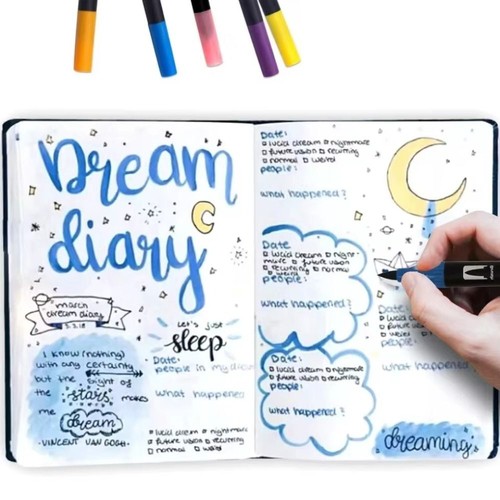 Dream
diary
march
dream diary
5.3.18
I know (nothing)
with any certainty
but the sight of
the stars makes
me dream
-VINCENT VAN GOGH-
Let's just
sleep
Date:
people in my
what happened
lucid dream nightmare
future vision recurring
normal weird
Date:
lucid dream nightmare
future vision recurring
normal weird
people:
what happened?
Date
lucid dream night-
mare future vision
recurring normal
weird
people:
what happened?
Date:
lucid dream nightmare
future vision recurring
normal weird
people:
what happened?
Date
lucid
future
weird
people:
what happened
dreaming